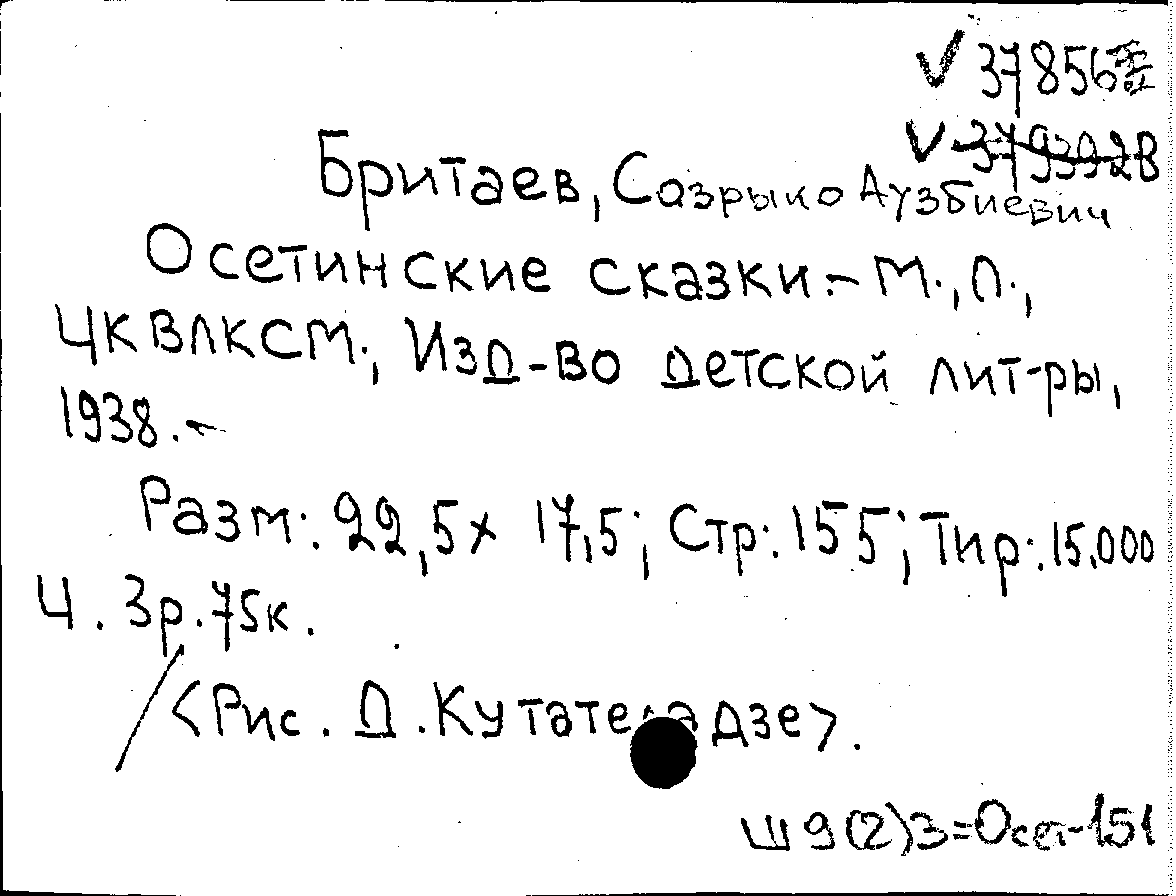 ✓ 37856
✓ 379392В
Бритаев, Созрыко Аузбиевич
Осетинские сказки.- М., Л.,
ЦК ВЛКСМ., Изд-во детской лит-ры,
1938.-
Разм: 22,5х 17,5; Стр: 155; Тир: 15.000
Ц. 3р. 75к.
/<Рис. Д. Кутателадзе>.
Ш 9(2)3=Осет-151